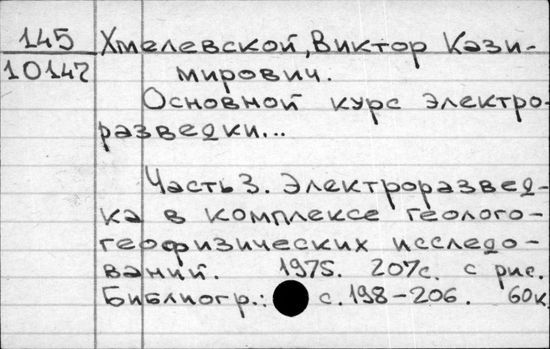 145 Хмелевской, Виктор Кази-
10147 мирович.
Основной курс электро-
разведки...
Часть 3. Электроразвед-
ка в комплексе геолого-
геофизических исследо-
ваний. 1975. 207с. с рис.
Библиогр.: с. 198-206. 60к.